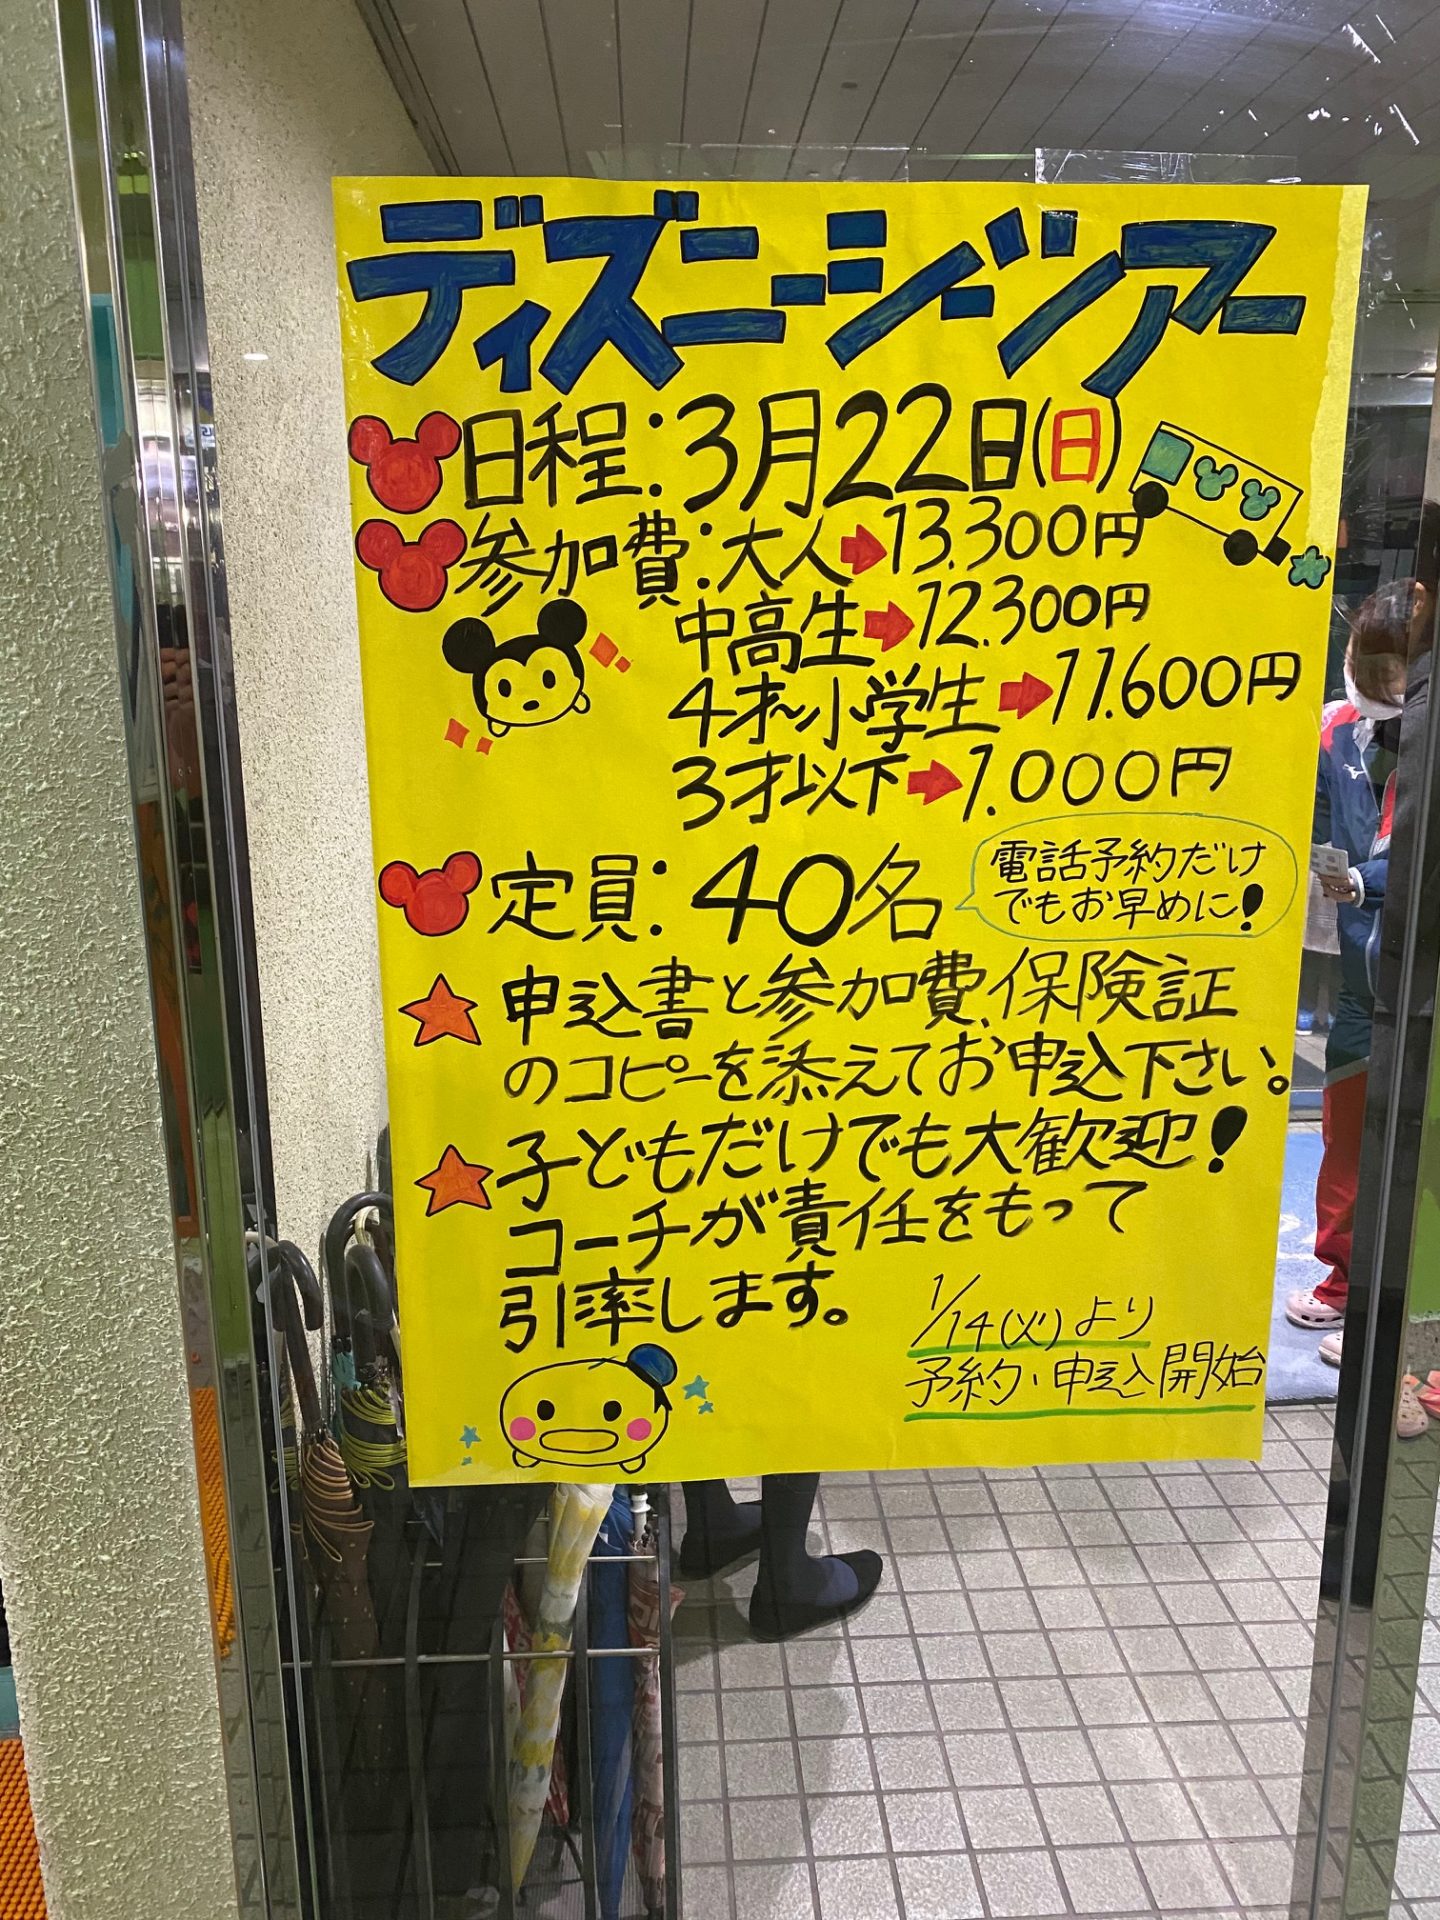 ディズニーシーツアー
日程:3月22日(日)
参加費:大人➡13.300円
中高生➡12.300円
4才〜小学生➡11.600円
3才以下➡1.000円
定員:40名
電話予約だけ
でもお早めに!
申込書と参加費、保険証
のコピーを添えてお申込下さい。
子どもだけでも大歓迎!
コーチが責任をもって
引率します。
1/14(火)より
予約・申込開始